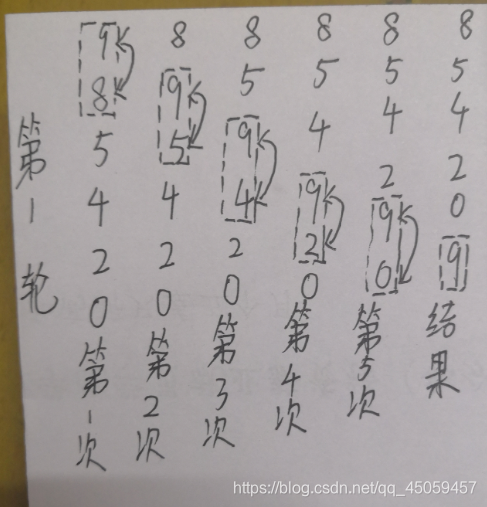 第1轮
9 8 8 8 8 8
8 9 5 5 5 5
5 5 9 4 4 4
4 4 4 9 2 2
2 2 2 2 9 0
0 0 0 0 0 9
第1次 第2次 第3次 第4次 第5次 结果
https://blog.csdn.net/qq_45059457